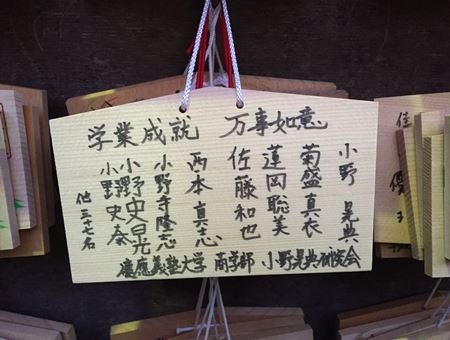 学業成就 万事如意
小野 晃典
菊盛真衣
蓮岡聡美
佐藤和也
西本直志
小野寺隆志
小野史晃光
小野史奈
他三七名
慶應義塾大学 商学部 小野晃典研究会